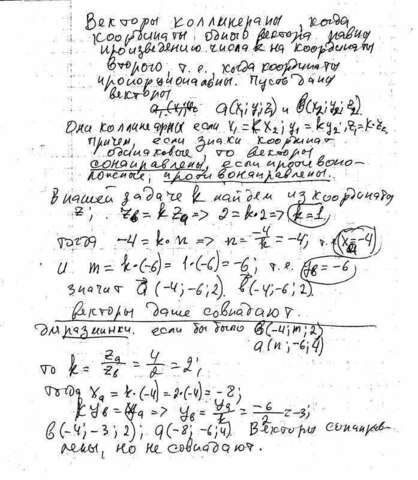 Векторы коллинеарны, когда
координаты одного вектора равны
произведению числа k на координаты
второго, т.е. когда координаты
пропорциональны. Пусть даны
векторы
a(x₁;y₁;z₁) и b(x₂;y₂;z₂).
Они коллинеарны если x₁=kx₂; y₁=ky₂; z₁=k·z₂
причем если знаки координат
одинаковые то векторы
сонаправлены, если противопо-
ложные, противонаправлены.
В нашей задаче k найдем из координаты
z; z_b = k z_a => 2=k·2 => k=1,
тогда -4=k·n => n=-4/k=-4, т.е x_a=-4
и m=k·(-6)=1·(-6)=-6; т.е. y_b=-6,
значит a(-4;-6;2). b(-4;-6;2)
векторы даже совпадают.
Для разминки. если бы было b(-4;m;2)
a(n;-6;4)
то k=z_a/z_b=4/2=2;
тогда x_a=k·(-4)=2·(-4)=-8;
k y_b=y_a => y_b=y_a/k=-6/2=-3;
b(-4;-3;2); a(-8;-6;4) Векторы сонаправ-
лены, но не совпадают.